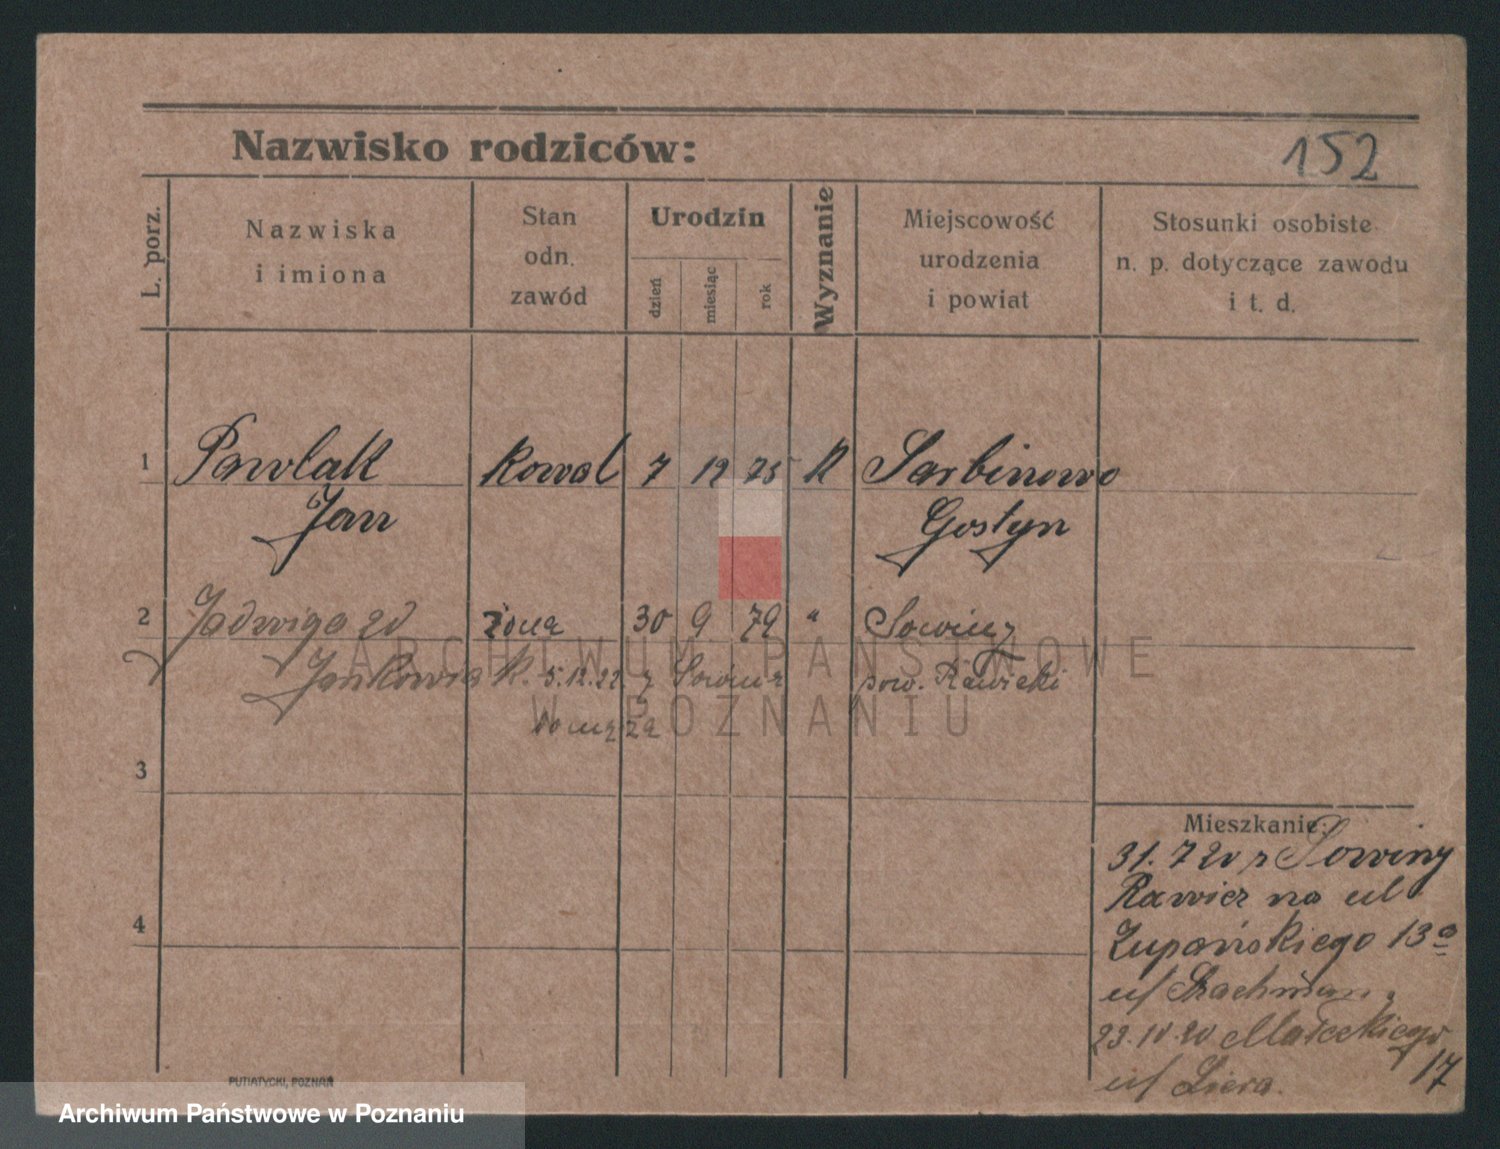 152
Nazwisko rodziców:
L. porz.
Nazwiska
i imiona
Stan
odn.
zawód
Urodzin
dzień
miesiąc
rok
Wyznanie
Miejscowość
urodzenia
i powiat
Stosunki osobiste
n. p. dotyczące zawodu
i t. d.
1 Pawlak kowal 7 12 75 R Sarbinowo
Jan Gostyn
2 Jadwiga zd żona 30 9 79 " Sowiny
Jankowiak. 5.12.22. z Sowina pow. Rawicki
do męża
3
4
Mieszkanie:
31.7 20 z Sowiny
Rawicz na ul
Żupańskiego 13a
u/
23.10.20 Małeckiego
17
u/
ARCHIWUM PAŃSTWOWE
W POZNANIU
PUTIATYCKI, POZNAŃ
Archiwum Państwowe w Poznaniu